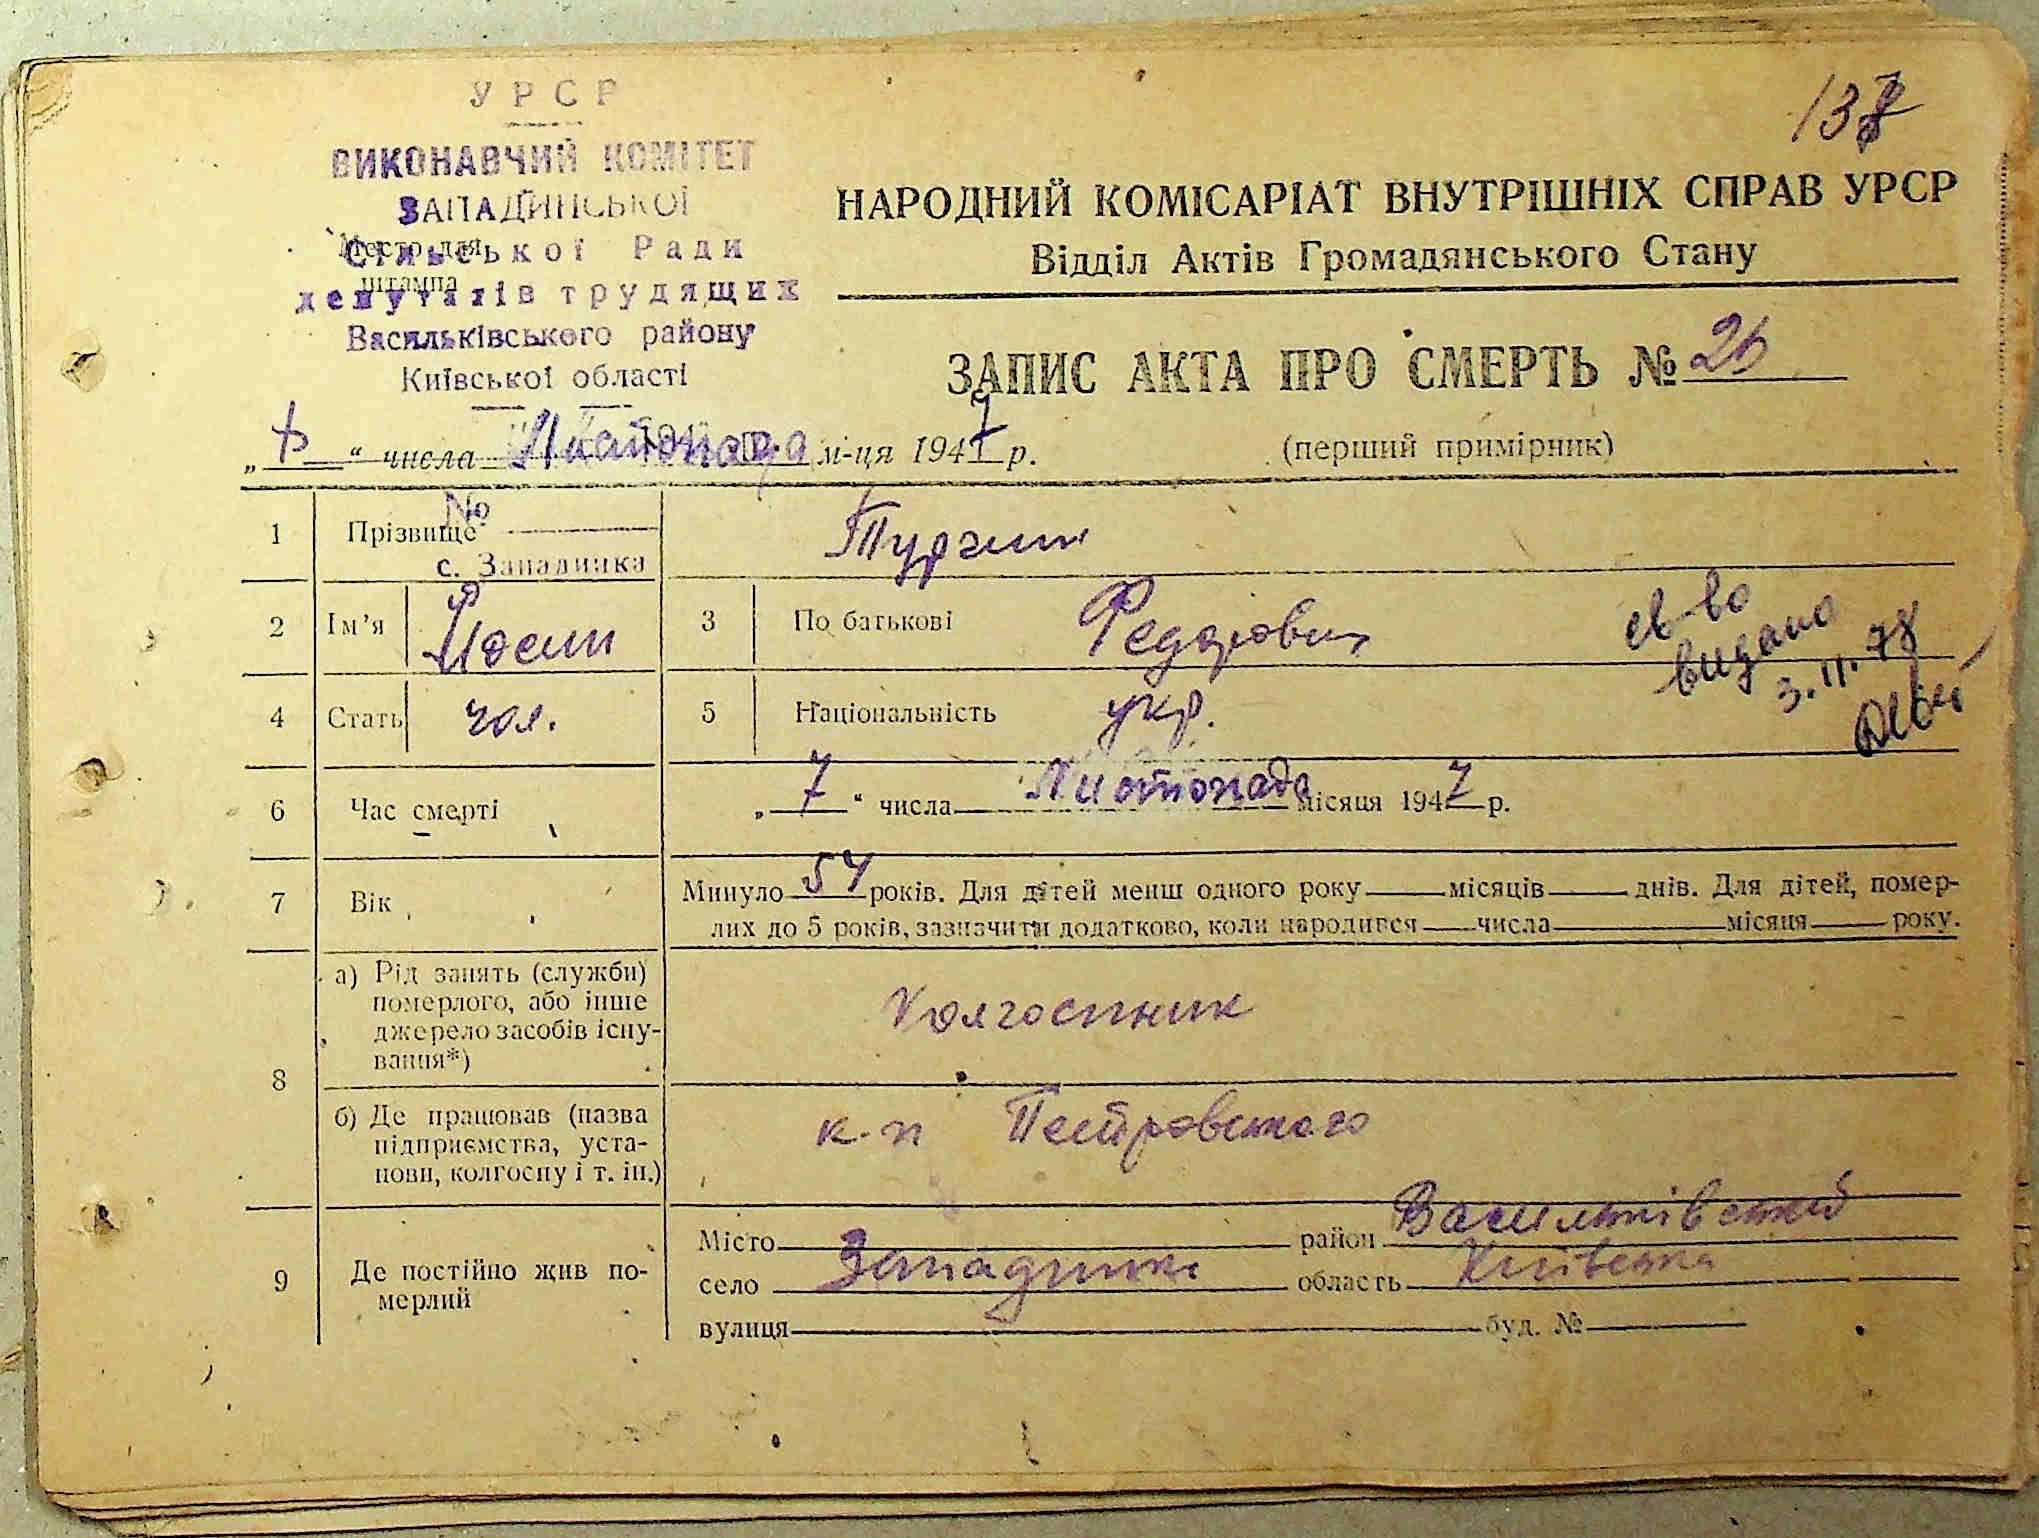 137
УРСР
ВИКОНАВЧИЙ КОМІТЕТ
ЗАПАДИНСЬКОЇ
Сільської Ради
депутатів трудящих
Васильківського району
Київської області
Место для
штампа
НАРОДНИЙ КОМІСАРІАТ ВНУТРІШНІХ СПРАВ УРСР
Відділ Актів Громадянського Стану
ЗАПИС АКТА ПРО СМЕРТЬ № 26
„ “ числа Листопада м-ця 1947 р. (перший примірник)
№
с. Западинка
1 Прізвище Турчин
2 Ім’я Йосип 3 По батькові Федорович
св-во
видано
3.11.78
4 Стать чол. 5 Національність укр.
6 Час смерті „7“ числа Листопада місяця 1947 р.
7 Вік Минуло 54 років. Для дітей менш одного року місяців днів. Для дітей, помер-
лих до 5 років, зазначити додатково, коли народився числа місяця року.
8 а) Рід занять (служби)
померлого, або інше
джерело засобів існу-
вання*)
Колгоспник
б) Де працював (назва
підприємства, уста-
нови, колгоспу і т. ін.)
к-п Петровського
9 Де постійно жив по-
мерлий
Місто район Васильківський
село Западинка область Київська
вулиця буд. №